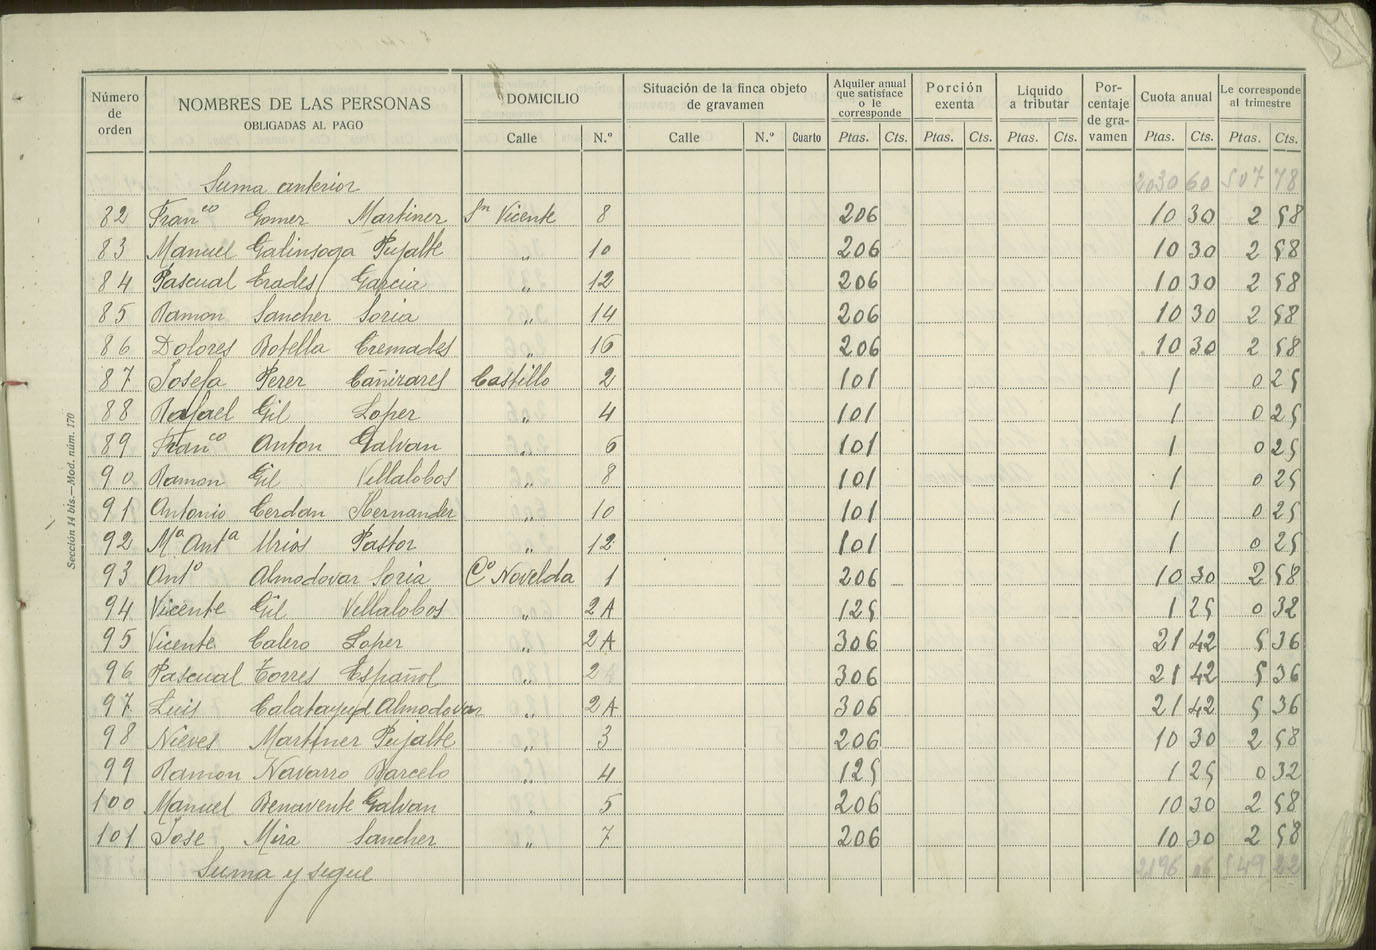 Número de orden | NOMBRES DE LAS PERSONAS OBLIGADAS AL PAGO | DOMICILIO | Situación de la finca objeto de gravamen | Alquiler anual que satisface o le corresponde | Porción exenta | Líquido a tributar | Porcentaje de gravamen | Cuota anual | Le corresponde al trimestre
Calle | N.º | Calle | N.º | Cuarto | Ptas. | Cts. | Ptas. | Cts. | Ptas. | Cts. | Ptas. | Cts. | Ptas. | Cts.
Suma anterior 2030 60 507 78
82 Franco Gomer Martiner Sn Vicente 8 206 10 30 2 58
83 Manuel Galinsoga Pujalte " 10 206 10 30 2 58
84 Pascual Erades Garcia " 12 206 10 30 2 58
85 Ramon Sancher Soria " 14 206 10 30 2 58
86 Dolores Botella Cremades " 16 206 10 30 2 58
87 Josefa Perer Cañirares Castillo 2 101 1 0 25
88 Rafael Gil Loper " 4 101 1 0 25
89 Franco Anton Galvan " 6 101 1 0 25
90 Ramon Gil Villalobos " 8 101 1 0 25
91 Antonio Cerdan Hernander " 10 101 1 0 25
92 Mª Antª Urios Pastor " 12 101 1 0 25
93 Antº Almodovar Soria Cº Novelda 1 206 10 30 2 58
94 Vicente Gil Villalobos " 2A 125 1 25 0 32
95 Vicente Calero Loper " 2A 306 21 42 5 36
96 Pascual Torres Español " 2A 306 21 42 5 36
97 Luis Calatayud Almodovar " 2A 306 21 42 5 36
98 Nieves Martiner Pujalte " 3 206 10 30 2 58
99 Ramon Navarro Barcelo " 4 125 1 25 0 32
100 Manuel Benavente Galvan " 5 206 10 30 2 58
101 Jose Mira Sancher " 7 206 10 30 2 58
Suma y sigue 2196 549 22
Sección 14 bis.—Mod. núm. 170